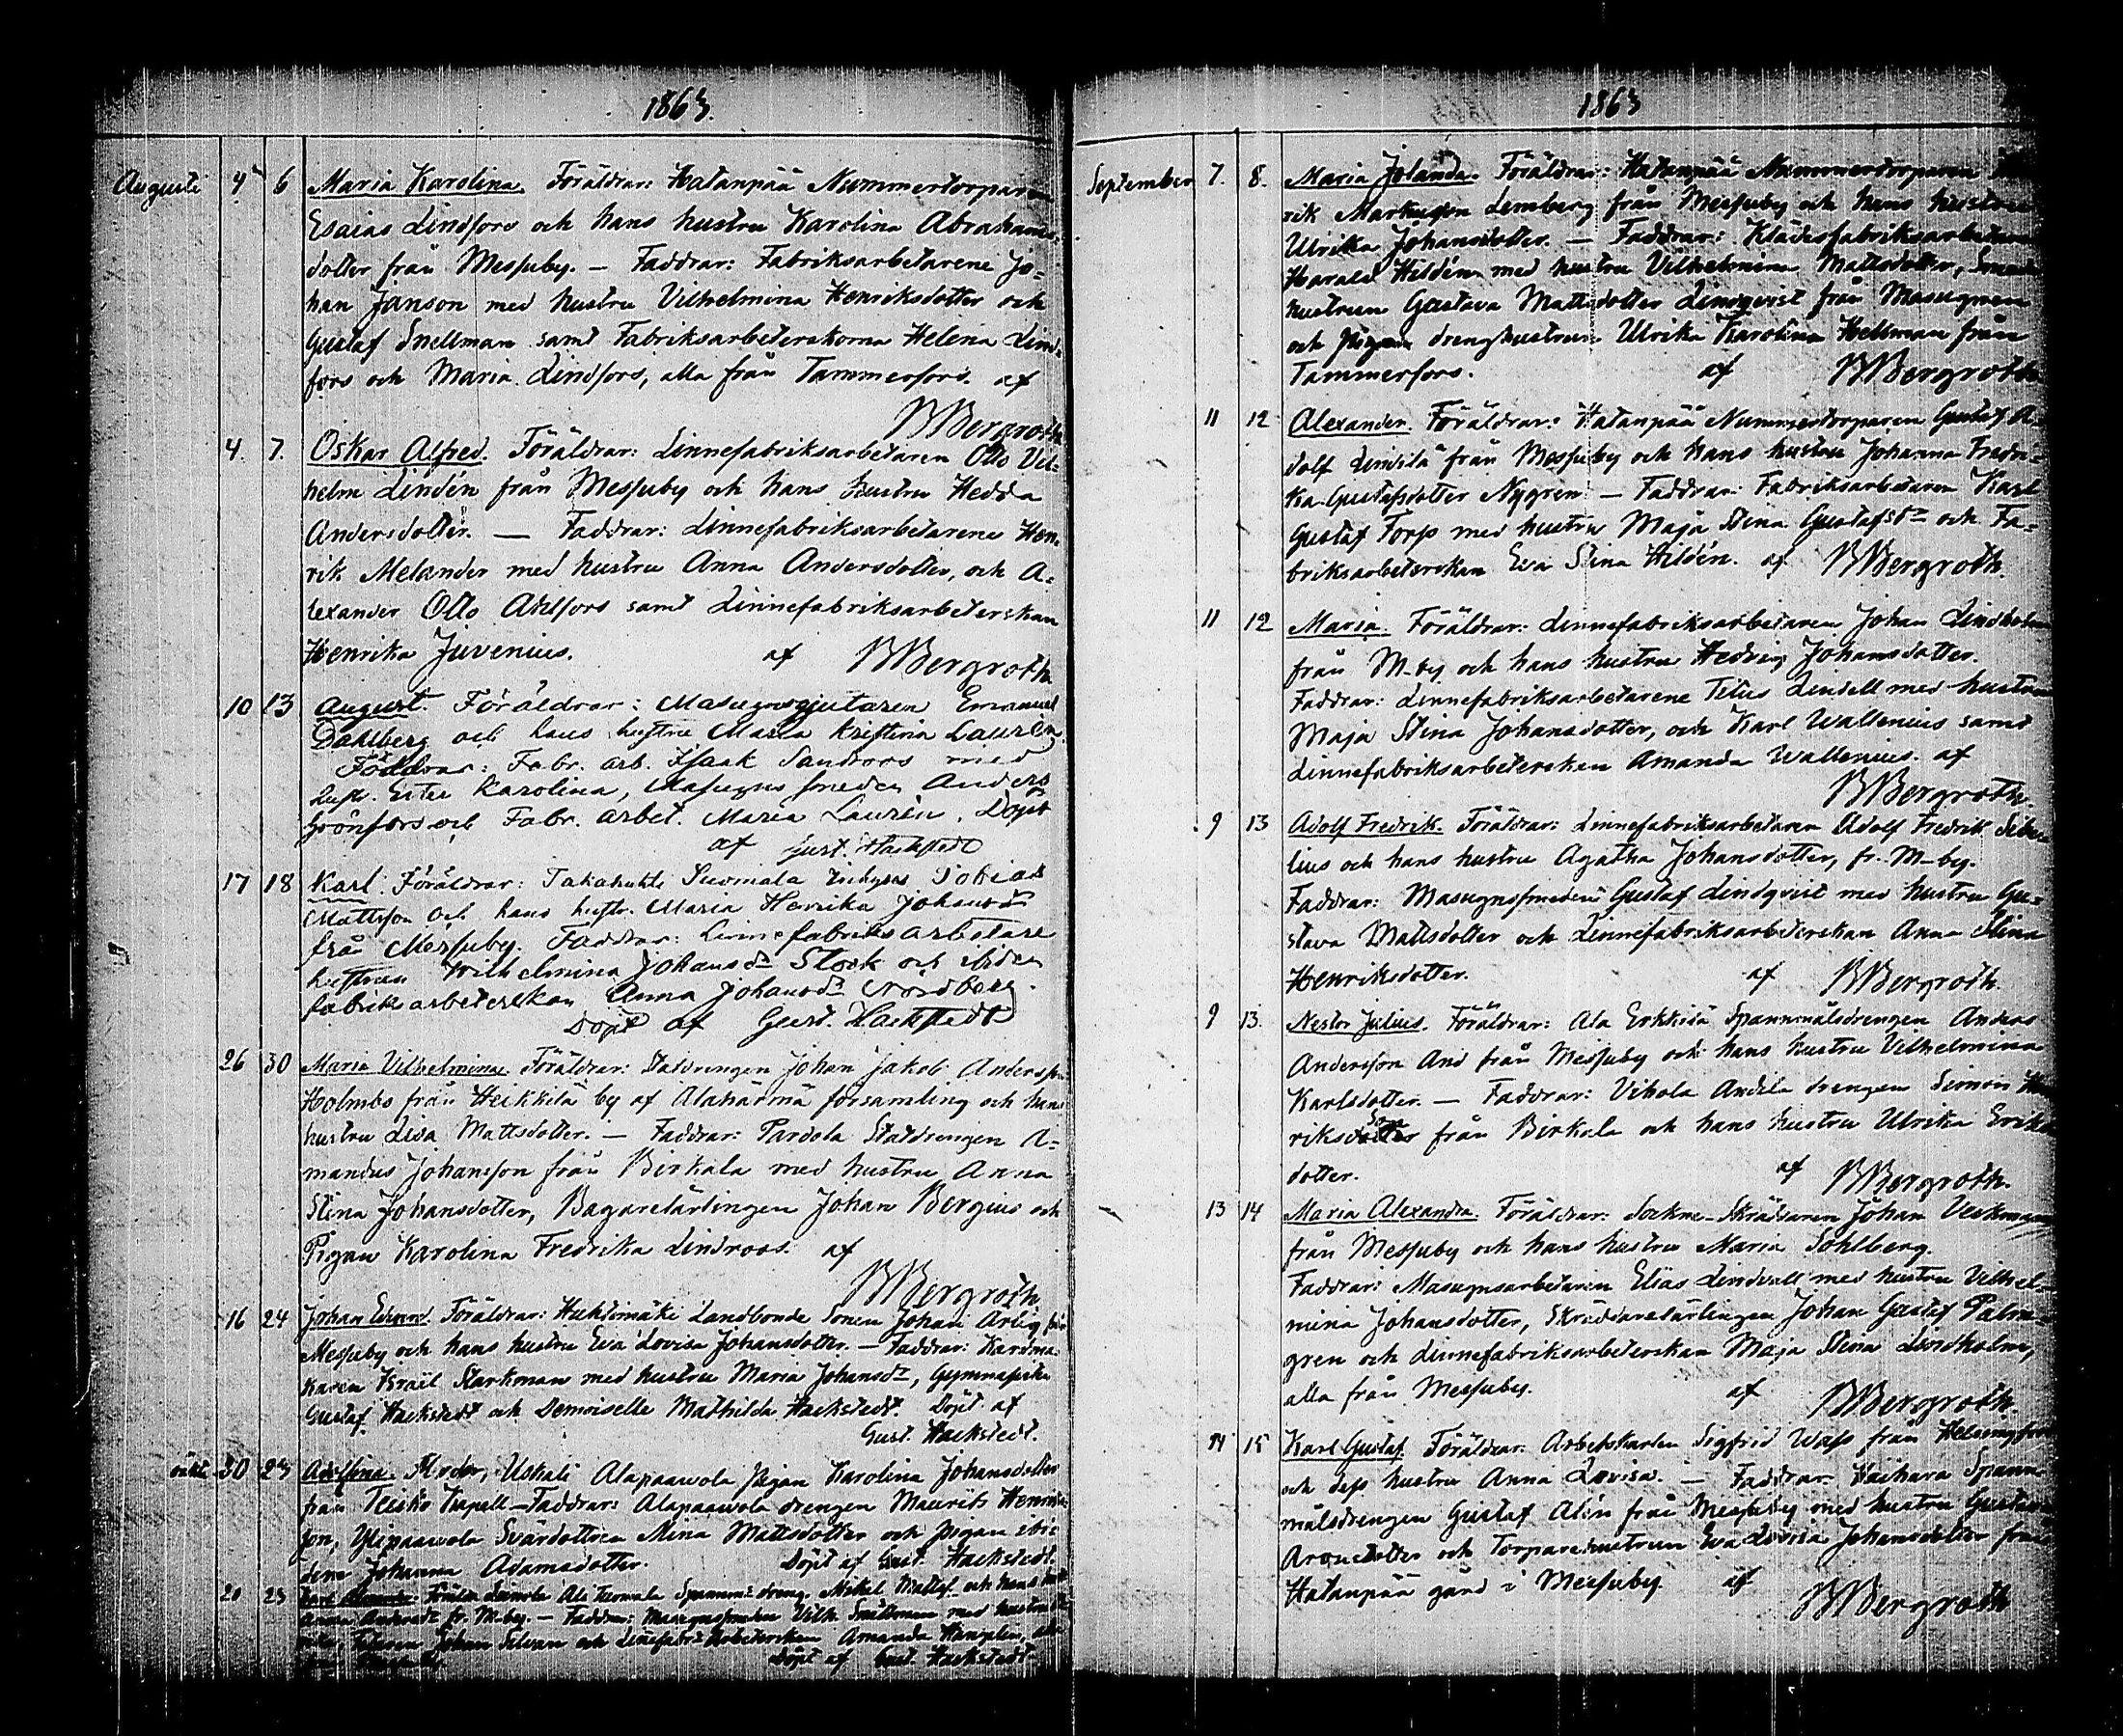 1863.
Augusti 4 6 Maria Karolina. Föräldrar: Hatanpää Nummertorparen
Esaias Lindfors och hans hustru Karolina Abrahams-
dotter från Messuby. — Faddrar: Fabriksarbetarene Jo-
han Janson med hustru Vilhelmina Henriksdotter och
Gustaf Snellman samt Fabriksarbeterskorna Helena Lind-
fors och Maria Lindfors, alla från Tammerfors. af
BBergroth
4. 7. Oskar Alfred. Föräldrar: Linnefabriksarbetaren Otto Vil-
helm Lindén från Messuby och hans hustru Hedda
Andersdotter. — Faddrar: Linnefabriksarbetarene Hen-
rik Melander med hustru Anna Andersdotter, och A-
lexander Otto Ahlfors samt Linnefabriksarbeterskan
Henrika Juvenius. af BBergroth.
10 13 August. Föräldrar: Masugnsgjutaren Emanuel
Dahlberg och hans hustru Maria Kristina Laurén.
Faddrar: Fabr. arb. Isaak Sandroos med
hustr. Karolina, Masugns smeden Anders
Grönfors och Fabr. arbet. Maria Laurén. Döpt
af Gust. Hackstedt
17 18 Karl. Föräldrar: Takahuhti Suomala Inhyses Tobias
Mattsson och hans hustr. Maria Henrika Johansdr
från Messuby. Faddrar: Linnefabriks arbetare
hustrun Wilhelmina Johansdr Stock och
fabriksarbeterskan Anna Johansdr Nordberg.
Döpt af Gust. Hackstedt
26 30 Maria Vilhelmina. Föräldrar: Statdrengen Johan Jakob Andersson
Holmbo från Heikkilä by af Alahärmä församling och hans
hustru Lisa Mattsdotter. — Faddrar: Pardola Statdrengen A-
mandus Johansson från Birkala med hustru Anna
Stina Johansdotter, Bagarelärlingen Johan Bergius och
Pigan Karolina Fredrika Lindroos. af
BBergroth
16 24 Johan Edvard. Föräldrar: Huhtimäki Landbonde Sonen Johan Arlig från
Messuby och hans hustru Eva Lovisa Johansdotter. — Faddrar: Kardma-
karen Israel Starkman med hustru Maria Johansdr, Gymnasisten
Gustaf Hackstedt och Demoiselle Mathilda Hackstedt. Döpt af
Gust. Hackstedt.
20 23 Adolfina. Moder, Uskali Alapaavola pigan Karolina Johansdotter
från Teisko Kapell — Faddrar: Alapaavola drengen Mauritz Henriks-
son, Ylipaavola Svärdottren Mina Mattsdotter och pigan ibi-
dem Johanna Adamsdotter. Döpt af Gust. Hackstedt.
20 23 Föräldrar: Ali Spannm. dreng Mikel Mattss. och hans
Anna Andersdr fr. M-by. — Faddrar: Masugnssmeden Vilh. med hustru
Johan Silvan och Linnefabrs Arbeterskan Amanda
Döpt af Gust. Hackstedt
1863
September 7. 8. Maria Jolanda. Föräldrar: Hatanpää Nummertorparen
rik Markusson Lemberg från Messuby och hans hustru
Ulrika Johansdotter. — Faddrar: Klädesfabriksarbetaren
Harald Hildén med hustru Vilhelmina Mattsdotter, Smeds
hustrun Gustava Mattsdotter Lindqvist från Masugnen
och drenghustrun Ulrika Karolina Hellman från
Tammerfors. af BBergroth
11 12 Alexander. Föräldrar: Hatanpää Nummertorparen Gustaf A-
dolf Lindilä från Messuby och hans hustru Johanna Fredri-
ka Gustafsdotter Nygren. — Faddrar: Fabriksarbetaren Karl
Gustaf Forss med hustru Maja Stina Gustafsdr och Fa-
briksarbeterskan Eva Stina Hildén. af BBergroth.
11 12 Maria. Föräldrar: Linnefabriksarbetaren Johan Lindholm
från M-by och hans hustru Hedvig Johansdotter.
Faddrar: Linnefabriksarbetarene Titus Lindell med hustru
Maja Stina Johansdotter, och Karl Wallenius samt
Linnefabriksarbeterskan Amanda Wallenius. af
BBergroth.
9 13 Adolf Fredrik. Föräldrar: Linnefabriksarbetaren Adolf Fredrik Sibe-
lius och hans hustru Agatha Johansdotter, fr. M-by.
Faddrar: Masugnssmeden Gustaf Lindqvist med hustru Gu-
stava Mattsdotter och Linnefabriksarbeterskan Anna Stina
Henriksdotter. af BBergroth.
9 13. Nestor Julius. Föräldrar: Ala Erkkilä Spannmålsdrengen Anders
Andersson And från Messuby och hans hustru Vilhelmina
Karlsdotter. — Faddrar: Vihola Andila drengen Simon Hen-
riksson från Birkala och hans hustru Ulrika Eriks-
dotter. af BBergroth.
13 14 Maria Alexandra. Föräldrar: Sockne-Skräddaren Johan Verkman
från Messuby och hans hustru Maria Sohlberg.
Faddrar: Masugnsarbetaren Elias Lindvall med hustru Vilhel-
mina Johansdotter, Skräddarelärlingen Johan Gustaf Palm-
gren och Linnefabriksarbeterskan Maja Stina Lindholm,
alla från Messuby. af BBergroth.
14 15 Karl Gustaf. Föräldrar: Arbetskarlen Sigfrid Wass från Helsingfors
och dess hustru Anna Lovisa. — Faddrar: Kaihara Spann-
målsdrengen Gustaf Alén från Messuby med hustru Gustava
Aronsdotter och Torparehustrun Eva Lovisa Johansdotter från
Hatanpää gård i Messuby. af BBergroth